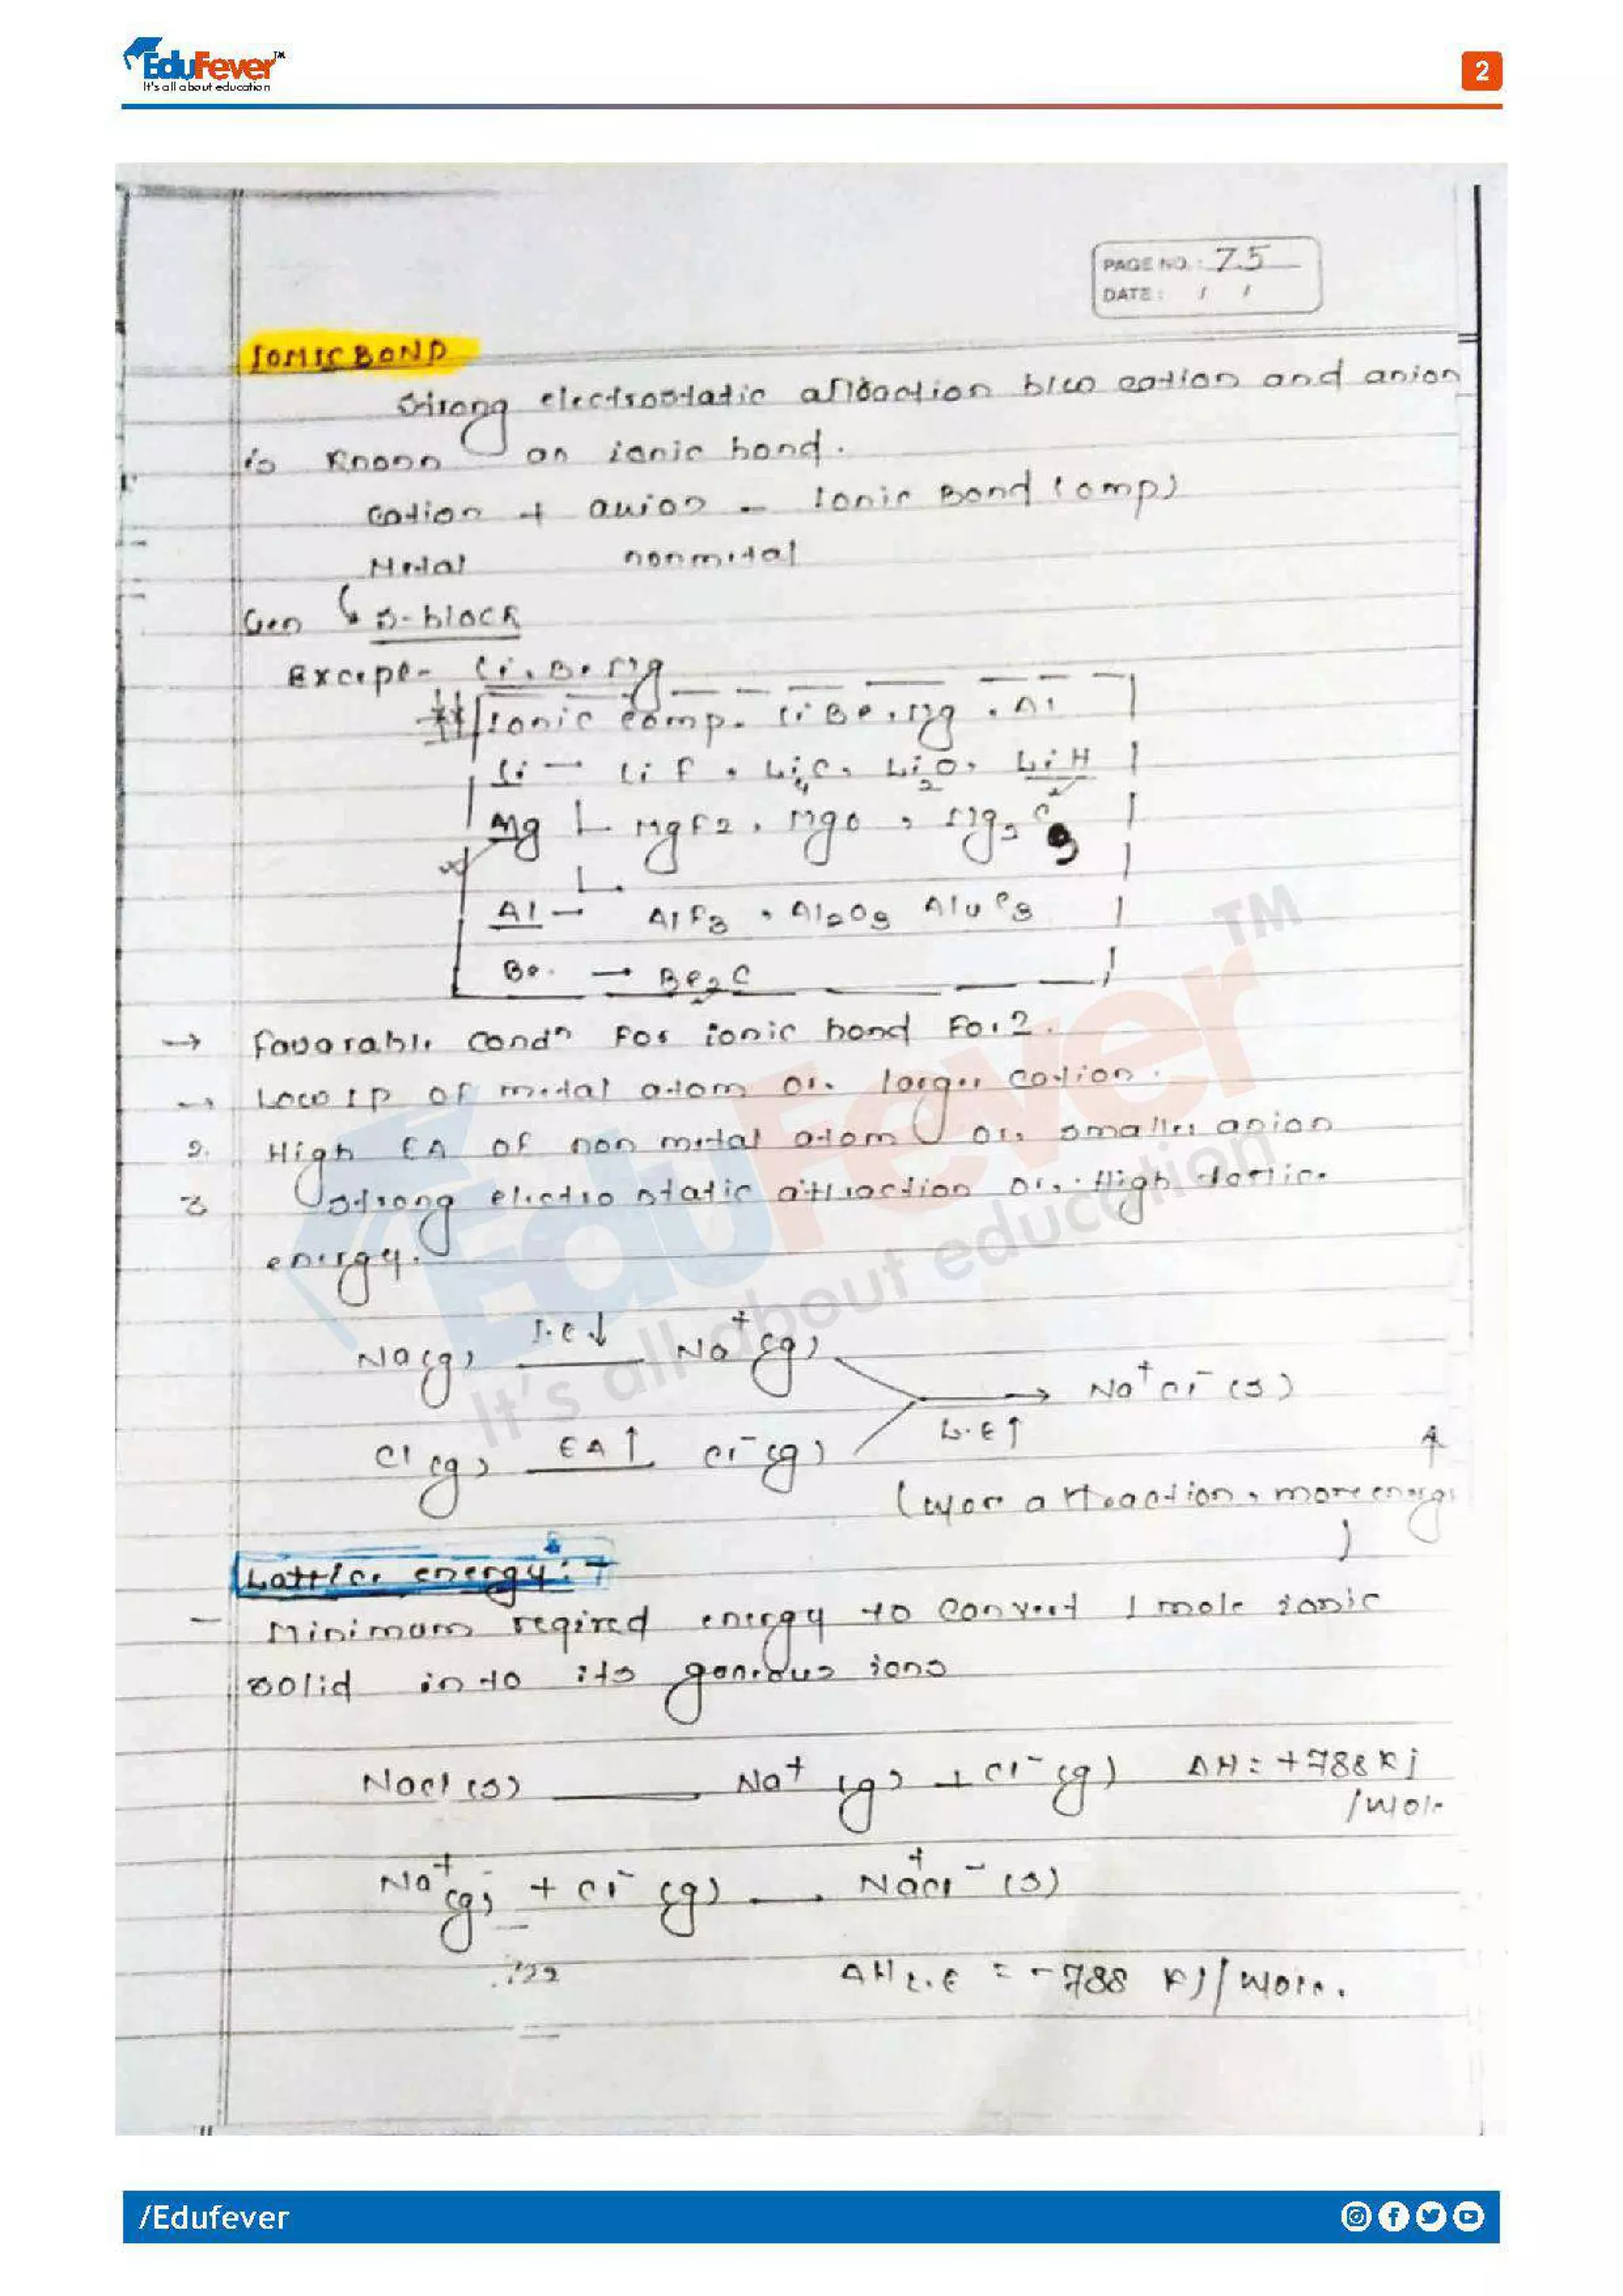 EduFever™
It's all about education
2
PAGE NO.: 75
DATE: / /
IONIC BOND
Strong electrostatic attraction b/w cation and anion
is known as ionic bond.
Cation + anion - Ionic Bond (omp)
Metal nonmetal
Gen ↳ s-block
Except- Li, Be, Mg
## Ionic comp. Li Be, Mg, Al
Li — LiF, Li4C, Li2O, LiH
Mg MgF2, MgO, Mg2C3
Al — AlF3, Al2O3 Al4C3
Be. → Be2C
→ Favorable condn For ionic bond For?.
Low IP of metal atom or. larger cation.
2. High EA of non metal atom or, smaller anion
3 strong electro static attraction or, High lattice
energy.
Na(g) I.E↓ Na+(g)
→ Na+Cl-(s)
L.E↑
Cl(g) EA↑ Cl-(g)
(more attraction, more energy
)
Lattice energy:-
- Minimum reqired energy to convert 1 mole ionic
solid in to its gaseous ions
NaCl(s) —— Na+(g) + Cl-(g) ΔH = +788 Kj
/mole
Na+(g) + Cl-(g) → Na+Cl-(s)
ΔH L.E = -788 KJ/mole.
EduFever™
It's all about education
/Edufever